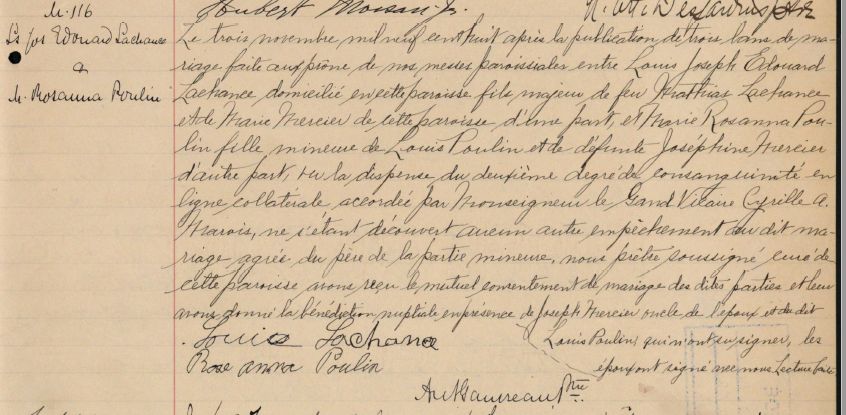 M. 116
Hubert Moisan Jr.
Ls Jos Edouard Lachance
&
M. Rosanna Poulin
Le trois novembre mil neuf cent huit après la publication de trois bans de ma-
riage faite aux prône de nos messes paroissiales entre Louis Joseph Edouard
Lachance domicilié en cette paroisse fils majeur de feu Mathias Lachance
et de Marie Mercier de cette paroisse d'une part, et Marie Rosanna Pou-
lin fille mineure de Louis Poulin et de défunte Joséphine Mercier
d'autre part, vu la dispense du deuxième degré de consanguinité en
ligne collatérale accordée par Monseigneur le Gand Vicaire Cyrille A.
Marois, ne s'étant découvert aucun autre empêchement au dit ma-
riage agrée du père de la partie mineure, nous prêtre soussigné curé de
cette paroisse avons reçu le mutuel consentement de mariage des dites parties et leur
avons donné la bénédiction nuptiale en présence de Joseph Mercier oncle de l'époux et du dit
Louis Poulin qui n'ont su signer, les
époux ont signé avec nous Lecture faite
Louis Lachance
Rose anna Poulin
Gauvreau Ptre